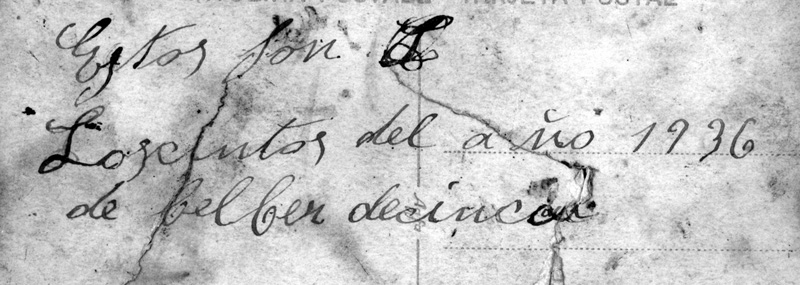 TARJETA POSTAL
Estos son L
Loscintos del año 1936
de belber decinca